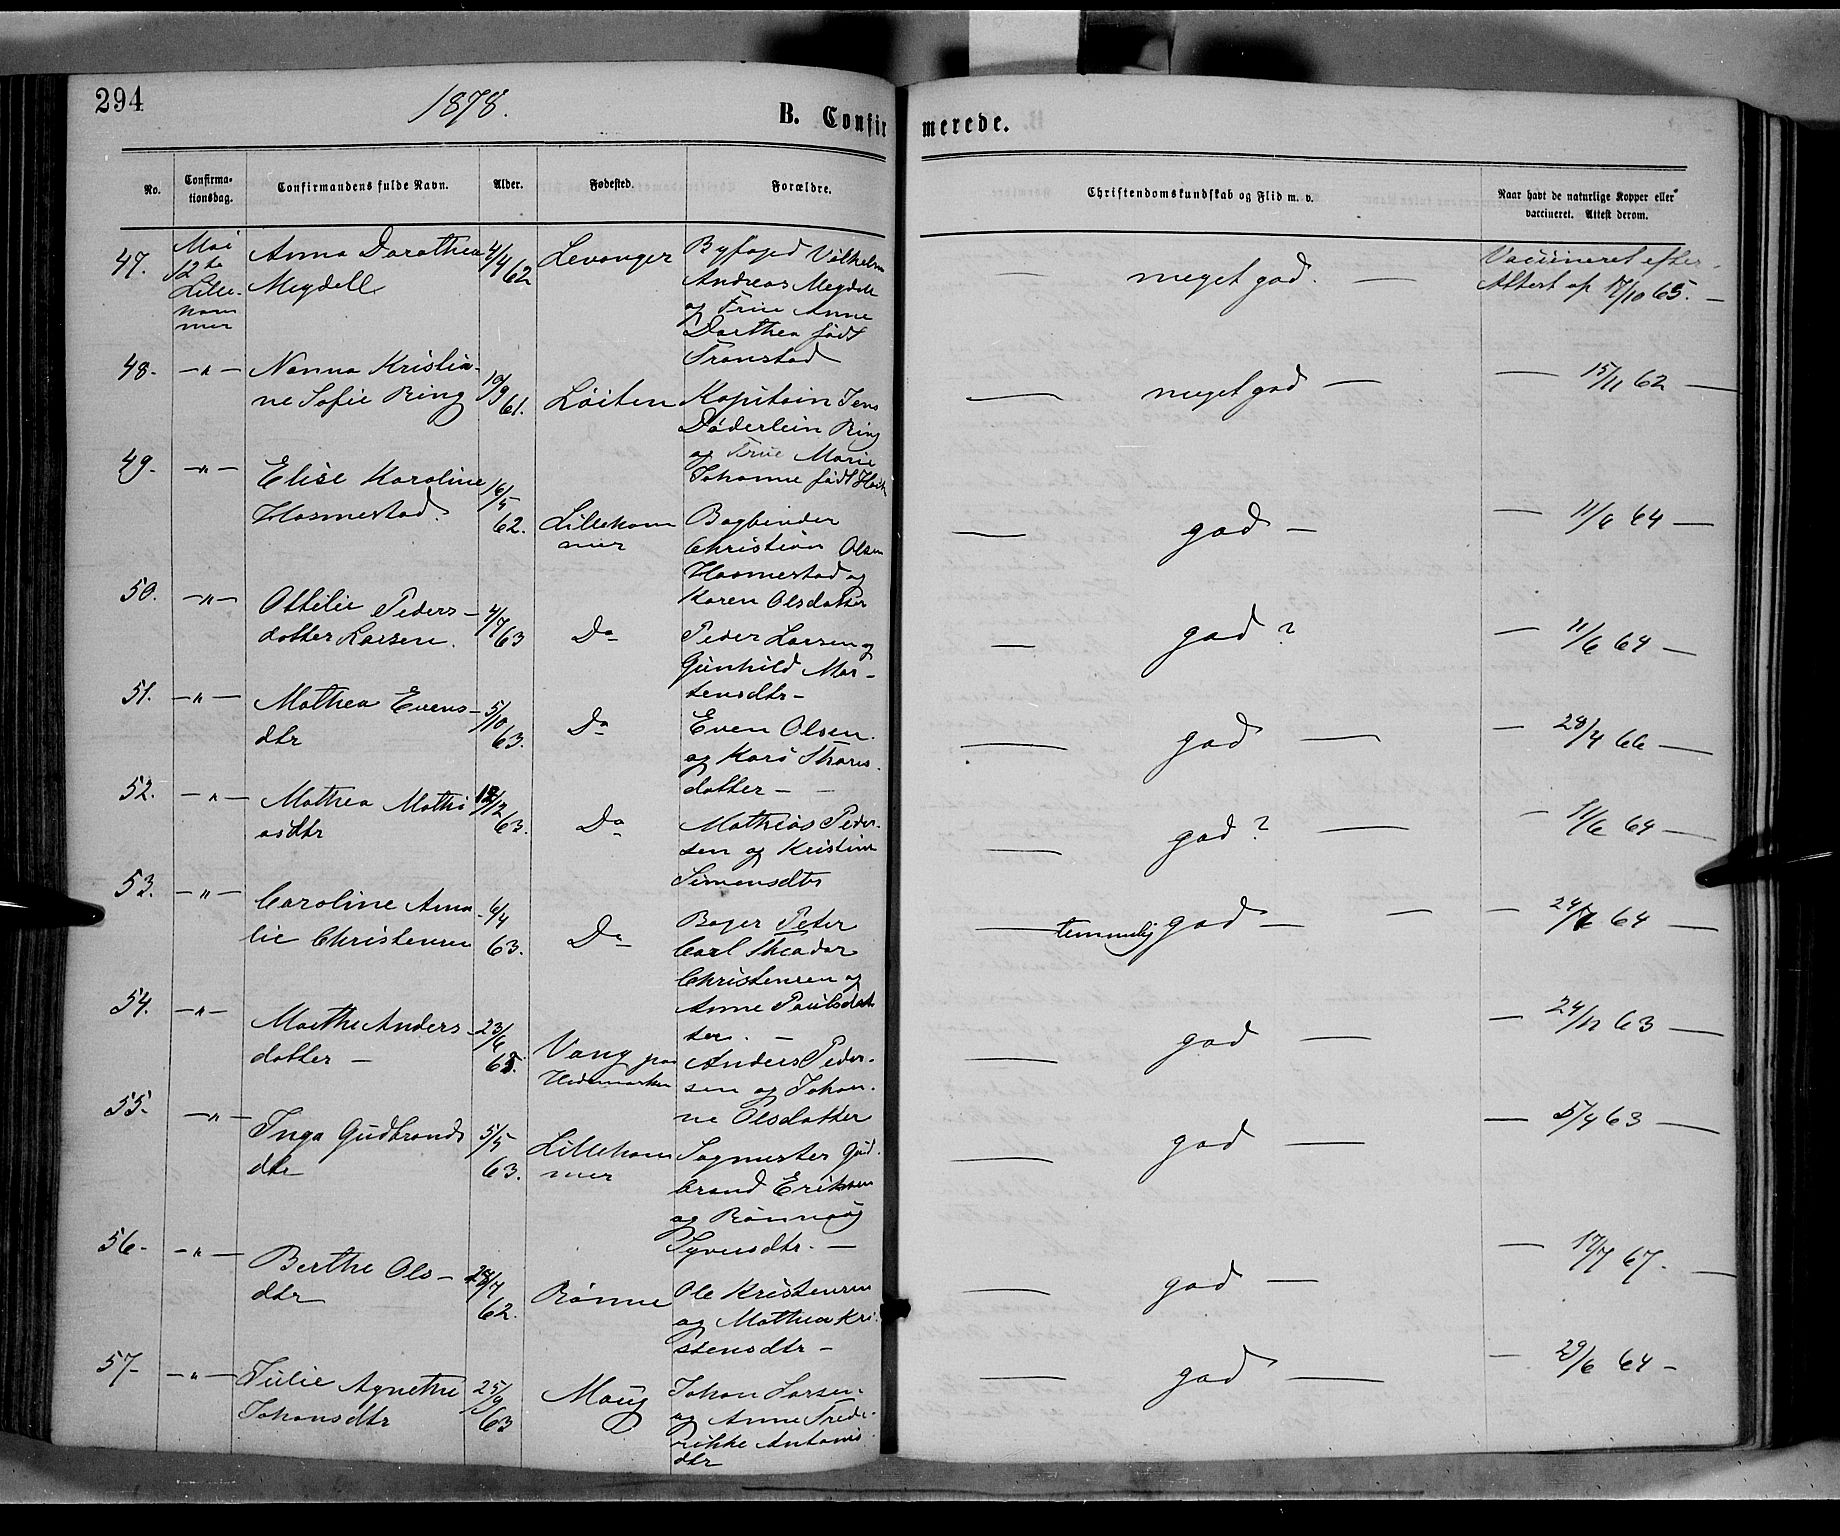 294
1878.
B. Confirmerede.
No.
Confirma-
tionsdag.
Confirmandens fulde Navn.
Alder.
Fødested.
Forældre.
Christendomskundskab og Flid m. v.
Naar havt de naturlige Kopper eller
vaccineret. Attest derom.
47.
Mai
12te
Lille-
ham
mer
Anna Dorothea
Meydell
4/4
62
Levanger
Byfoged Vilhelm
Andreas Meydell
og Frue Anne
Dorthea født
Tronstad
meget god. —
Vaccineret efter
Attest af 17/10 65. —
48.
— " —
Nanna Kristia-
ne Sofie Ring
19/9
61.
Löiten
Kapitain Jens
Döderlein Ring
og Frue Marie
Johanne født
meget god —
— 15/11 62 —
49.
— " —
Elise Karoline
Hosmestad.
16/5
62.
Lilleham
mer
Bogbinder
Christian Olsen
Hosmestad og
Karen Olsdatter
god —
— 11/6 64 —
50.
— " —
Ottilie Peders-
datter Larsen.
4/7
63
Do
Peder Larsen og
Gunhild Mor-
tensdtr —
god?
— 11/6 64 —
51.
— " —
Mathea Evens-
dtr
5/10
63.
Do
Even Olsen
og Kari Thores-
datter —
god —
— 28/4 66 —
52.
— " —
Mathea Mathi
asdtr
12/12
63.
Do
Mathias Peder-
sen og Kristine
Simensdtr
god? —
— 11/6 64 —
53.
— " —
Caroline Ama
lie Christensen
6/4
63.
Do
Bager Peter
Carl Theodor
Christensen og
Anne Paulsdat
ter. —
temmelig god —
— 24/6 64 —
54.
— " —
Marthe Anders
datter —
23/6
63.
Vang paa
Hedemarken
Anders Peder-
sen og Johan-
ne Olsdatter
god —
— 24/12 63 —
55.
— " —
Inga Gudbrands
dtr
5/5
63.
Lilleham
mer
Sagmester Gud-
brand Eriksen
og Rönnaug
Syversdtr. —
god —
— 5/9 63 —
56.
— " —
Berthe Ols-
dtr
62.
Ole Kristensen
og Mathea Kri-
stensdtr —
god —
— 17/7 67. —
57.
— " —
Julie Agnethe
Johansdtr
25/9
63
Johan Larsen
og Anne Frede-
rikke Antonis-
dtr
god —
— 29/6 64 —